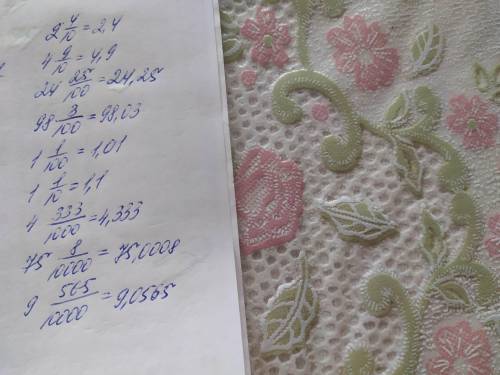 2 4/10 = 2,4
4 9/10 = 4,9
24 25/100 = 24,25
98 3/100 = 98,03
1 1/100 = 1,01
1 1/10 = 1,1
4 333/1000 = 4,333
75 8/10000 = 75,0008
9 565/10000 = 9,0565